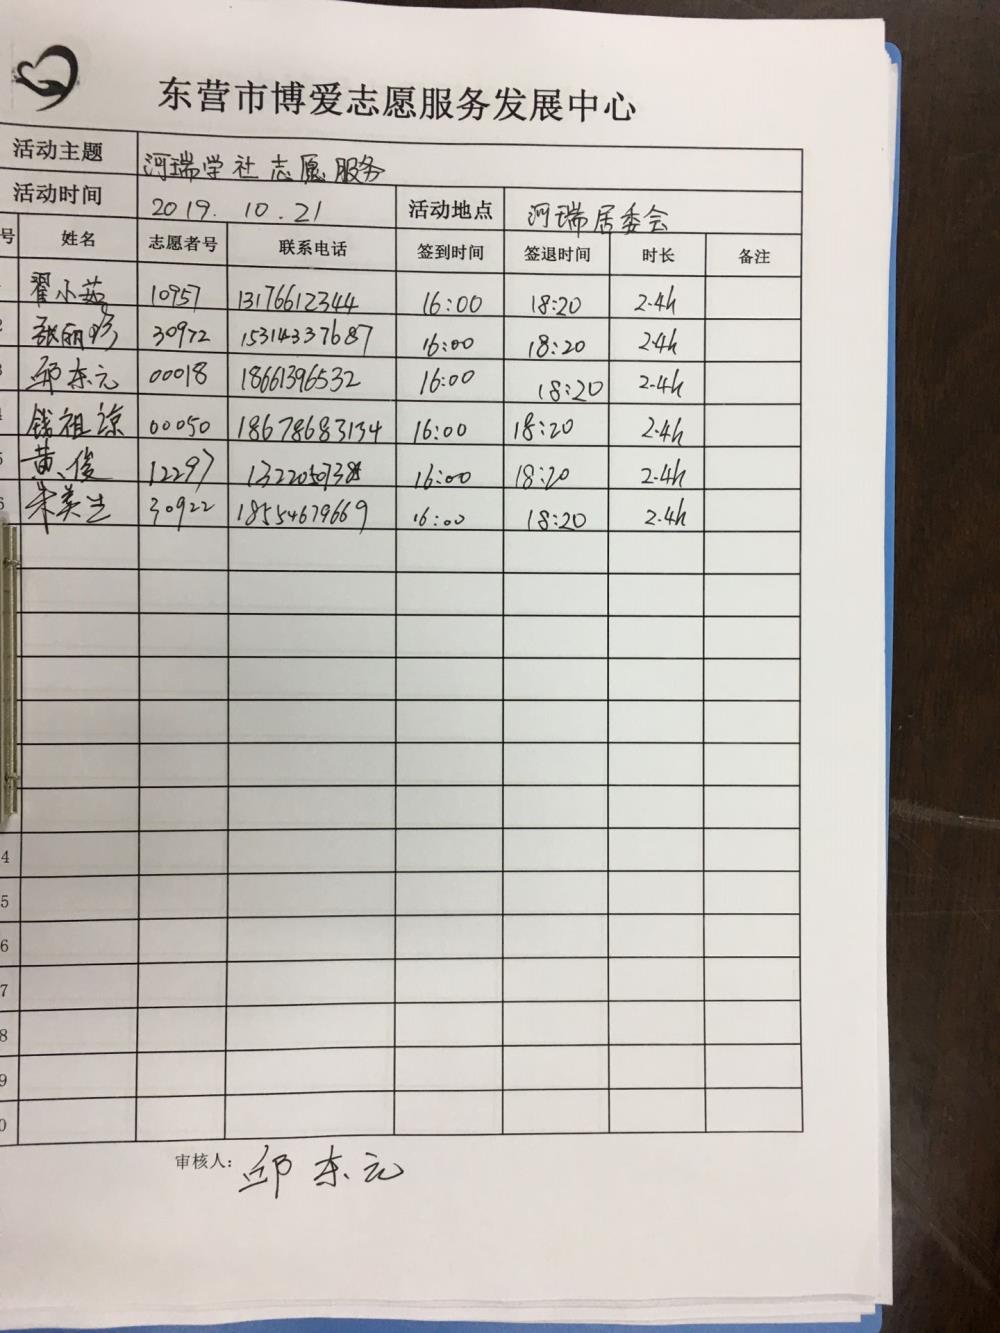 东营市博爱志愿服务发展中心
活动主题 河瑞学社志愿服务
活动时间 2019.10.21 活动地点 河瑞居委会
号 姓名 志愿者号 联系电话 签到时间 签退时间 时长 备注
翟小茹 10957 13176612344 16:00 18:20 2.4h
2 张丽珍 30972 15314337687 16:00 18:20 2.4h
3 邱东元 00018 18661396532 16:00 18:20 2.4h
4 钱祖谅 00050 18678683134 16:00 18:20 2.4h
5 黄俊 12297 16:00 18:20 2.4h
6 朱英兰 30922 18554679669 16:00 18:20 2.4h
4
5
6
7
8
9
0
审核人: 邱东元